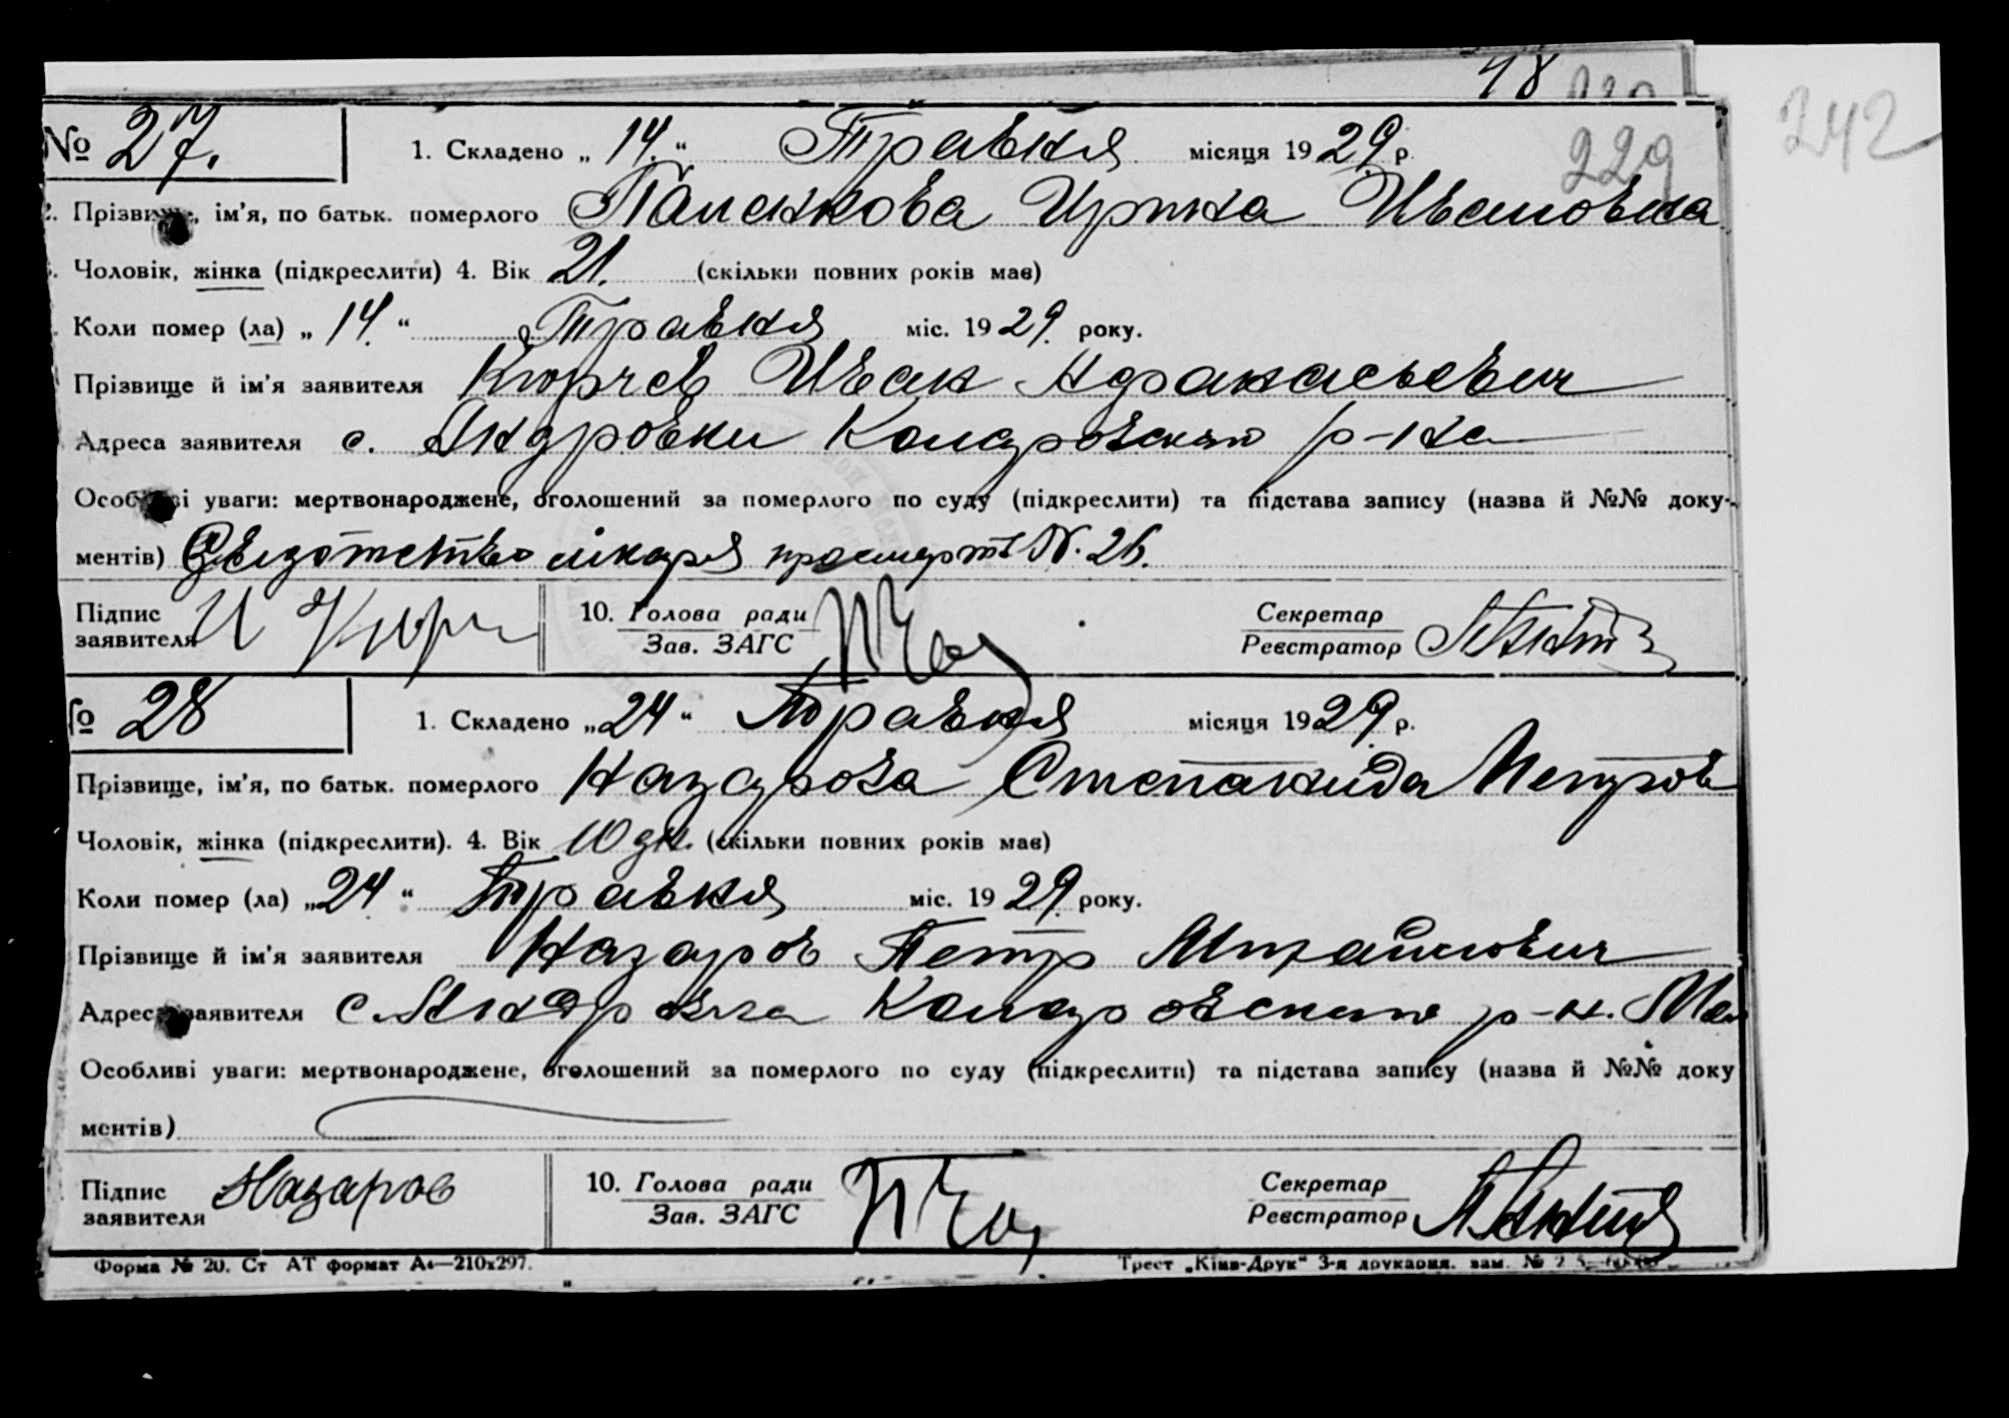 18
242
229
№ 27. 1. Складено „14.“ Травня місяця 1929 р.
2. Прізвище, ім'я, по батьк. померлого Ирина Ивановна
Чоловік, жінка (підкреслити) 4. Вік 21. (скільки повних років має)
Коли помер (ла) „14.“ Травня міс. 1929. року.
Прізвище й ім'я заявителя Кюрчев Иван Афанасьевич
Адреса заявителя с. Андровки р-на
Особливі уваги: мертвонароджене, оголошений за померлого по суду (підкреслити) та підстава запису (назва й №№ доку-
ментів) лікаря N. 26.
Підпис 10. Голова ради Секретар
заявителя И Кюрч Зав. ЗАГС Реєстратор
№ 28 1. Складено „24“ Травня місяця 1929 р.
Прізвище, ім'я, по батьк. померлого Назарова Степанида Петров
Чоловік, жінка (підкреслити). 4. Вік 10 дн. (скільки повних років має)
Коли помер (ла) „24“ Травня міс. 1929 року.
Прізвище й ім'я заявителя Назаров Петр
Адреса заявителя с. Андровка р-н. Мел
Особливі уваги: мертвонароджене, оголошений за померлого по суду (підкреслити) та підстава запису (назва й №№ доку
ментів)
Підпис 10. Голова ради Секретар
заявителя Назаров Зав. ЗАГС Реєстратор
Форма № 20. Ст АТ формат А4—210х297. Трест „Київ-Друк“ 3-я друкарня. зам. №